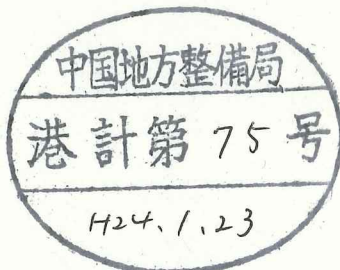 中国地方整備局
港計第 75 号
H24.1.23